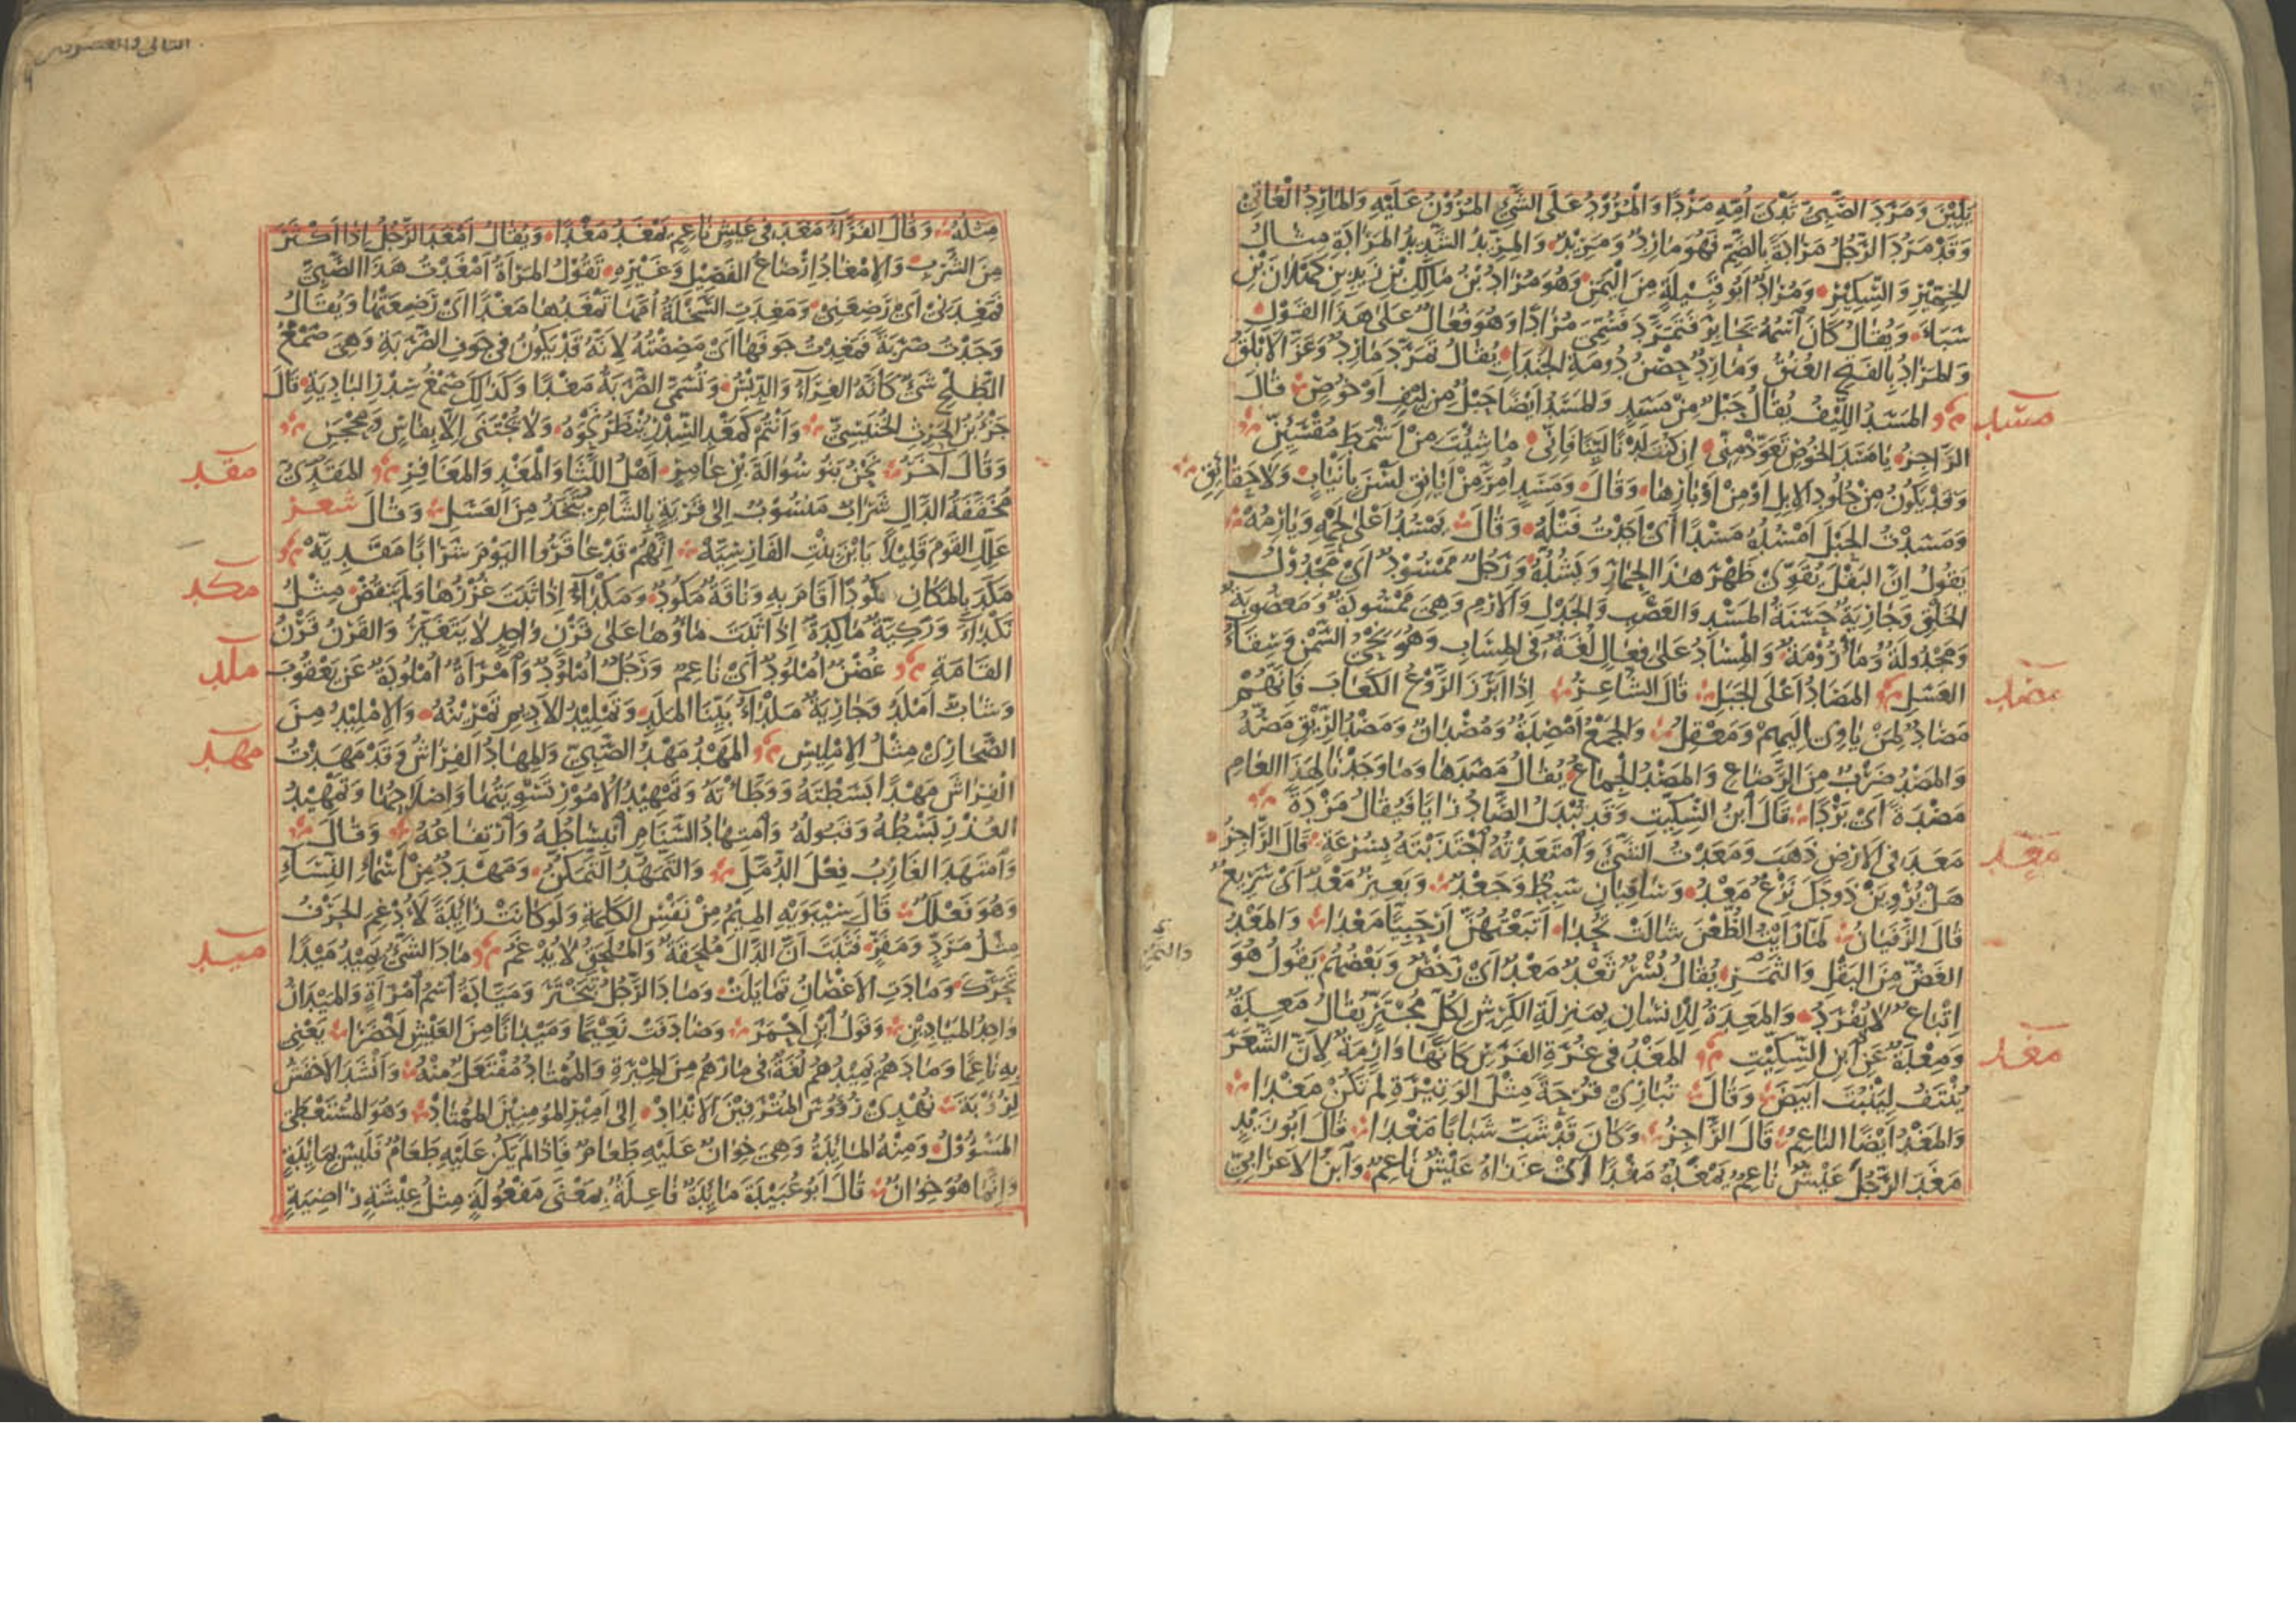 يَلِيْنَ وَمَرَدَ الصَّبِيُّ ثَدْىَ أُمِّهِ مَرْدًا وَالْمُرُوْدُ عَلَى الشَّيْءِ المُرُوْنُ عَلَيْهِ وَالمَارِدُ الْعَاتِيْ
وَقَدْ مَرُدَ الرَّجُلُ مَرَادَةً بِالضَّمِّ فَهُوَ مَارِدٌ وَمَرِيْدٌ وَالمِرِّيْدُ الشَّدِيْدُ المَرَادَةِ مِثَالُ
الخِمِّيْرِ وَالسِّكِّيْرِ وَمُرَادٌ أَبُو قَبِيْلَةٍ مِنَ الْيَمَنِ وَهُوَ مُرَادُ بْنُ مَالِكِ بْنِ زَيْدِ بْنِ كَهْلَانَ بْنِ
سَبَاءَ وَيُقَالُ كَانَ اسْمُهُ يُحَابِرَ فَتَمَرَّدَ فَسُمِّىَ مُرَادًا وَهُوَ فُعَالٌ عَلَى هَذَا القَوْلِ
وَالمَرَادُ بِالفَتْحِ العُنُقُ وَمَارِدٌ حِصْنُ دُوْمَةِ الجَنْدَلِ يُقَالُ تَمَرَّدَ مَارِدٌ وَعَزَّ الأَبْلَقُ
مسد المَسَدُ اللِّيْفُ يُقَالُ حَبْلٌ مِنْ مَسَدٍ وَالمَسَدُ أَيْضًا حَبْلٌ مِنْ لِيْفٍ أَوْ خُوْصٍ قَالَ
الرَّاجِزُ يَا مَسَدَ الخُوْصِ تَعَوَّذْ مِنِّى إِنْ كُنْتَ لَدْنًا لَيِّنًا فَإِنِّى مَا شِئْتَ مِنْ أَشْمَطَ مُقْسَئِنِّ
وَقَدْ يَكُوْنُ مِنْ جُلُوْدِ الإِبِلِ أَوْ مِنْ أَوْبَارِهَا وَقَالَ وَمَسَدٍ أُمِرَّ مِنْ أَيَانِقِ لَسْنَ بِأَنْيَابٍ وَلَا حَقَائِقِ
وَمَسَدْتُ الحَبْلَ أَمْسُدُهُ مَسْدًا أَىْ أَجَدْتُ فَتْلَهُ وَقَالَ يَمْسُدُ أَعْلَى لَحْمِهِ وَيَأْرِمُهْ
يَقُوْلُ إِنَّ البَقْلَ يُقَوِّىْ ظَهْرَ هَذَا الحِمَارِ وَيَشُدُّهُ وَرَجُلٌ مَمْسُوْدٌ أَىْ مَجْدُوْلُ
الخَلْقِ وَجَارِيَةٌ حَسَنَةُ المَسْدِ وَالعَصْبِ وَالجَدْلِ وَالأَرْمِ وَهِىَ مَمْسُودَةٌ وَمَعْصُوْبَةٌ
وَمَجْدُولَةٌ وَمَأْرُوْمَةٌ وَالمِسَادُ عَلَى فِعَالٍ لُغَةٌ فِى المِسَابِ وَهُوَ نِحْيُ السَّمْنِ وَسِقَاءُ
العَسَلِ مصد المَصَادُ أَعْلَى الجَبَلِ قَالَ الشَّاعِرُ إِذَا أَبْرَزَ الرَّوْعُ الكَعَابَ فَإِنَّهُمْ
مَصَادٌ لِمَنْ يَأْوِى إِلَيْهِمْ وَمَعْقِلُ وَالجَمْعُ أَمْصِدَةٌ وَمُصْدَانٌ وَمَصْدُ الرِّيْقِ مَصُّهُ
وَالمَصْدُ ضَرْبٌ مِنَ الرَّضَاعِ وَالمَصْدُ الجِمَاعُ يُقَالُ مَصَدَهَا وَمَا وَجَدْنَا لِهَذَا العَامِ
مَصْدَةً أَىْ بَرْدًا قَالَ ابْنُ السِّكِّيْتِ وَقَدْ تُبْدَلُ الصَّادُ زَايًا فَيُقَالُ مَزْدَةً
معد مَعَدَ فِى الأَرْضِ ذَهَبَ وَمَعَدْتُ الشَّيْءَ وَامْتَعَدْتُهُ اجْتَذَبْتَهُ بِسُرْعَةٍ قَالَ الرَّاجِزُ
هَلْ يُرْوِيَنْ ذَوْدَكَ نَزْعٌ مَعْدُ وَسَاقِيَانِ سَبِطٌ وَجَعْدُ وَبَعِيْرٌ مَعْدٌ أَىْ سَرِيْعٌ
قَالَ الزَّفَيَانُ لَمَّا رَأَيْتُ الظُّعْنَ شَالَتْ تُحْدَا أَتْبَعْتُهُنَّ أَرْحَبِيًّا مَعْدَا وَالمَعْدُ
الغَضُّ مِنَ البَقْلِ وَالثَّمَرِ يُقَالُ بُسْرٌ ثَعْدٌ مَعْدٌ أَىْ رَخْصٌ وَبَعْضُهُمْ يَقُولُ هُوَ
اتْبَاعٌ لَا يُفْرَدُ وَالمَعِدَةُ لِلإِنْسَانِ بِمَنْزِلَةِ الكَرِشِ لِكُلِّ مُجْتَرٍّ يُقَالُ مَعِدَةٌ
وَمِعْدَةٌ عَنِ ابْنِ السِّكِّيْتِ مغد المَغْدُ فِى غُرَّةِ الفَرَسِ كَأَنَّهَا وَارِمَةٌ لِأَنَّ الشَّعَرَ
يُنْتَفُ لِيَنْبُتَ أَبْيَضَ وَقَالَ تُبَارِىْ قُرْحَةً مِثْلَ الوَتِيْرَةِ لَمْ تَكُنْ مَغْدَا
وَالمَغْدُ أَيْضًا النَّاعِمُ قَالَ الرَّاجِزُ وَكَانَ قَدْ شَبَّ شَبَابًا مَغْدَا قَالَ أَبُو زَيْدٍ
مَغَدَ الرَّجُلَ عَيْشٌ نَاعِمٌ يَمْغَدُهُ مَغْدًا أَىْ غَذَاهُ عَيْشٌ نَاعِمٌ وَابْنُ الأَعْرَابِيِّ
مِثْلُهُ وَقَالَ الفَرَّاءُ مَغَدَ فِى عَيْشٍ نَاعِمٍ يَمْغَدُ مَغْدًا وَيُقَالُ أَمْغَدَ الرَّجُلُ إِذَا أَكْثَرَ
مِنَ الشُّرْبِ وَالإِمْغَادُ إِرْضَاعُ الفَصِيْلِ وَغَيْرِهِ تَقُوْلُ المَرْأَةُ أَمْغَدْتُ هَذَا الصَّبِيَّ
فَمَغَدَنِىْ أَىْ رَضِعَنِىْ وَمَغَدَتِ السَّخْلَةُ أُمَّهَا تَمْغَدُهَا مَغْدًا أَىْ رَضِعَتْهَا وَيُقَالُ
وَجَدْتُ صَرَبَةً فَمَغَدْتُ جَوْفَهَا أَىْ مَصِصْتُهُ لِأَنَّهُ قَدْ يَكُوْنُ فِى جَوْفِ الصَّرَبَةِ وَهِىَ صَمْغُ
الطَّلْحِ شَيْءٌ كَأَنَّهُ الغِرَاءُ وَالدِّبْسُ وَتُسَمَّى الصَّرَبَةُ مَغْدًا وَكَذَلِكَ صَمْغُ سِدْرِ البَادِيَةِ قَالَ
جَزْءُ بْنُ الحَرْثِ وَأَنْتُمْ كَمَغْدِ السِّدْرِ يُنْظَرُ نَحْوَهُ وَلَا يُجْتَنَى إِلَّا بِفَاسٍ وَمِحْجَنِ
مقد وَقَالَ آخَرُ نَحْنُ بَنُو سُوَاءَةَ بْنِ عَامِرِ أَهْلُ اللَّثَا وَالمَغْدِ وَالمَغَافِرِ المَقَدِىُّ
مُخَفَّفَةُ الدَّالِ شَرَابٌ مَنْسُوْبٌ إِلَى قَرْيَةٍ بِالشَّامِ يُتَّخَذُ مِنَ العَسَلِ وَقَالَ شعر
عَلِّلِ القَوْمَ قَلِيْلًا يَا بْنَ بِنْتِ الفَارِسِيَّهْ إِنَّهُمْ قَدْ عَاقَرُوا اليَوْمَ شَرَابًا مَقَدِيَّهْ
مكد مَكَدَ بِالمَكَانِ مُكُوْدًا أَقَامَ بِهِ وَنَاقَةٌ مَكُوْدٌ وَمَكْدَاءُ إِذَا ثَبَتَ غُزْرُهَا وَلَمْ يَنْقُصْ مِثْلُ
نَكْدَاءَ وَرَكِيَّةٌ مَاكِدَةٌ إِذَا ثَبَتَ مَاؤُهَا عَلَى قَرْنٍ وَاحِدٍ لَا يَتَغَيَّرُ وَالقَرْنُ قَرْنُ
ملد القَامَةِ غُصْنٌ أُمْلُوْدٌ أَىْ نَاعِمٌ وَرَجُلٌ أُمْلُوْدٌ وَامْرَأَةٌ أُمْلُوْدَةٌ عَنْ يَعْقُوْبَ
وَشَابٌّ أَمْلَدُ وَجَارِيَةٌ مَلْدَاءُ بَيِّنَا المَلَدِ وَتَمْلِيْدُ الأَدِيْمِ تَمْرِيْنُهُ وَالإِمْلِيْدُ مِنَ
مهد الصَّحَارِىْ مِثْلُ الإِمْلِيْسِ المَهْدُ مَهْدُ الصَّبِيِّ وَالمِهَادُ الفِرَاشُ وَقَدْ مَهَدْتُ
الفِرَاشَ مَهْدًا بَسَطْتُهُ وَوَطَّأْتُهُ وَتَمْهِيْدُ الأُمُوْرِ تَسْوِيَتُهَا وَإِصْلَاحُهَا وَتَمْهِيْدُ
العُذْرِ بَسْطُهُ وَقَبُوْلُهُ وَامْتِهَادُ السَّنَامِ انْبِسَاطُهُ وَارْتِفَاعُهُ وَقَالَ
وَامْتَهَدَ الغَارِبُ فِعْلَ الدُّمَّلِ وَالتَّمَهُّدُ التَّمَكُّنُ وَمَهْدَدُ مِنْ أَسْمَاءِ النِّسَاءِ
وَهُوَ فَعْلَلٌ قَالَ سِيْبَوَيْهِ المِيْمُ مِنْ نَفْسِ الكَلِمَةِ وَلَوْ كَانَتْ زَائِدَةً لَأُدْغِمَ الحَرْفُ
ميد مِثْلُ مَرَدٍّ وَمَفَرٍّ فَثَبَتَ أَنَّ الدَّالَ مُلْحَقَةٌ وَالمُلْحَقُ لَا يُدْغَمُ مَادَ الشَّيْءُ يَمِيْدُ مَيْدًا
تَحَرَّكَ وَمَادَتِ الأَغْصَانُ تَمَايَلَتْ وَمَادَ الرَّجُلُ تَبَخْتَرَ وَمَيَّادَةُ اسْمُ امْرَأَةٍ وَالمَيْدَانُ
وَاحِدُ المَيَادِيْنِ وَقَوْلُ ابْنِ أَحْمَرَ وَصَادَفَتْ نَعِيْمًا وَمَيْدَانًا مِنَ العَيْشِ أَخْضَرَا يَعْنِى
بِهِ نَاعِمًا وَمَادَهُمْ يَمِيْدُهُمْ لُغَةٌ فِى مَارَهُمْ مِنَ المِيْرَةِ وَالمُمْتَادُ مُفْتَعَلٌ مِنْهُ وَأَنْشَدَ الأَخْفَشُ
لِرُؤْبَةَ نُهْدِىْ رُؤُوْسَ المُتْرَفِيْنَ الأَنْدَادْ إِلَى أَمِيْرِ المُؤْمِنِيْنَ المُمْتَادْ وَهُوَ المُسْتَعْطَى
المَسْؤُوْلُ وَمِنْهُ المَائِدَةُ وَهِىَ خِوَانٌ عَلَيْهِ طَعَامٌ فَإِذَا لَمْ يَكُنْ عَلَيْهِ طَعَامٌ فَلَيْسَ بِمَائِدَةٍ
وَإِنَّمَا هُوَ خِوَانٌ قَالَ أَبُو عُبَيْدَةَ مَائِدَةٌ فَاعِلَةٌ بِمَعْنَى مَفْعُوْلَةٍ مِثْلُ عِيْشَةٍ رَاضِيَةٍ